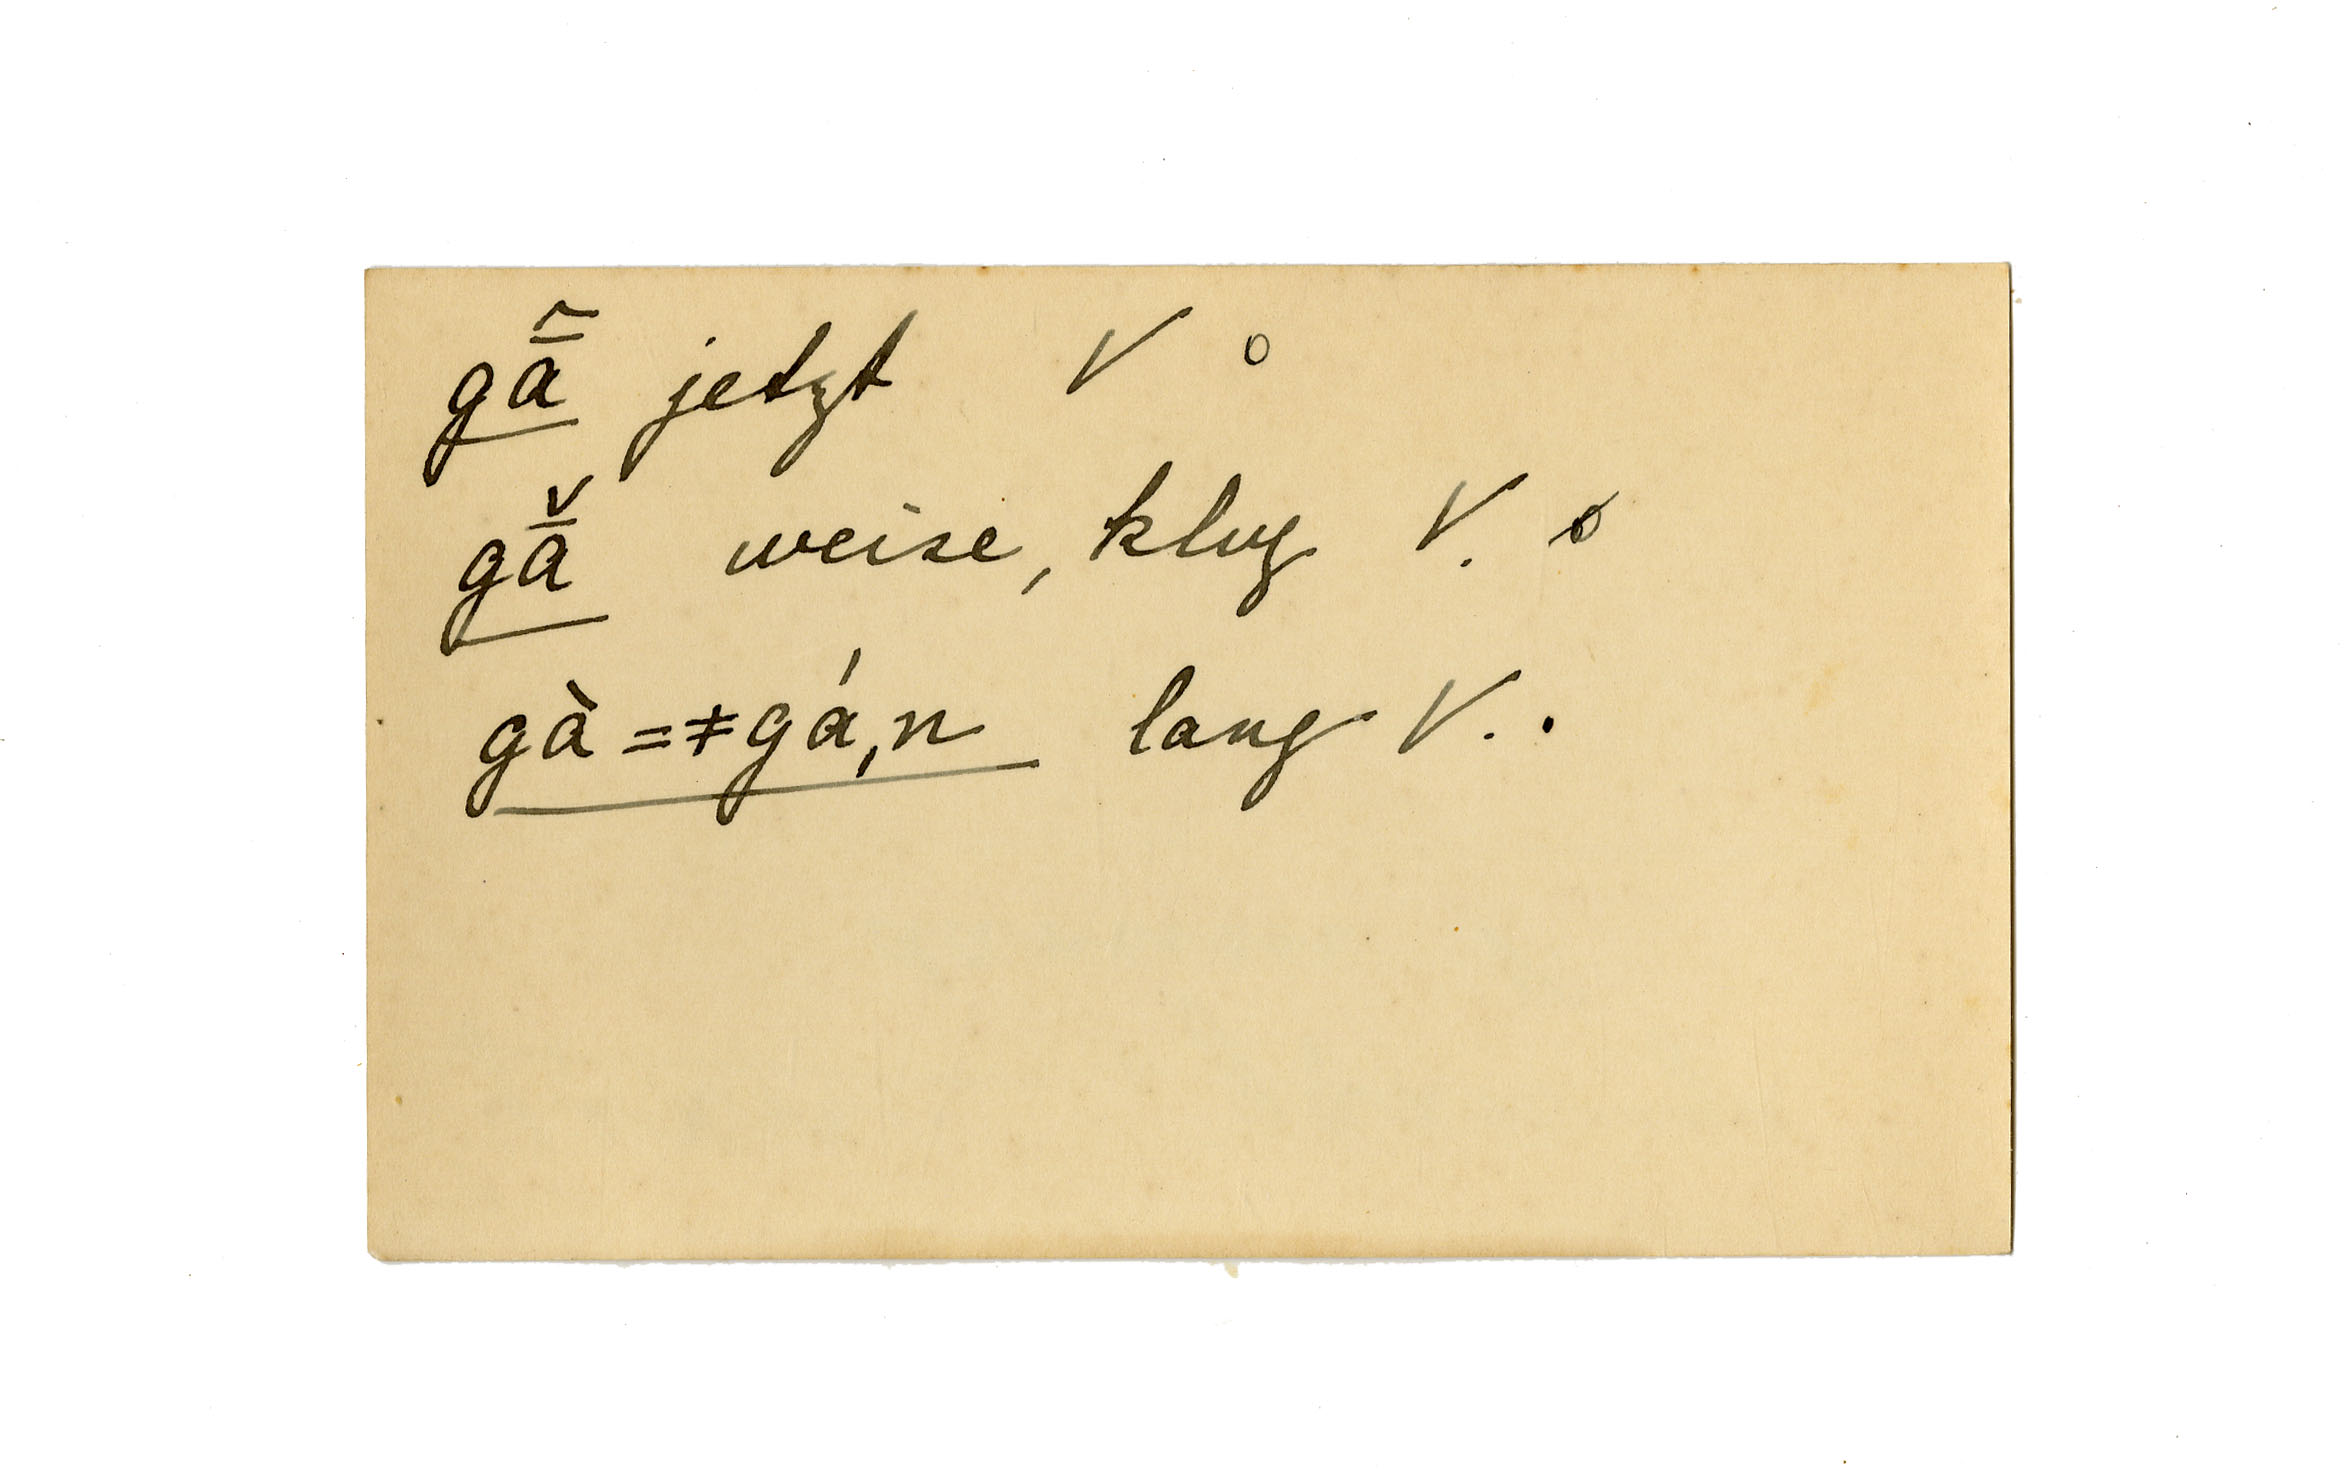 gā̃ jetzt V o
gā̌ weise, klug V. o
gà=ǂgá,n lang V. .